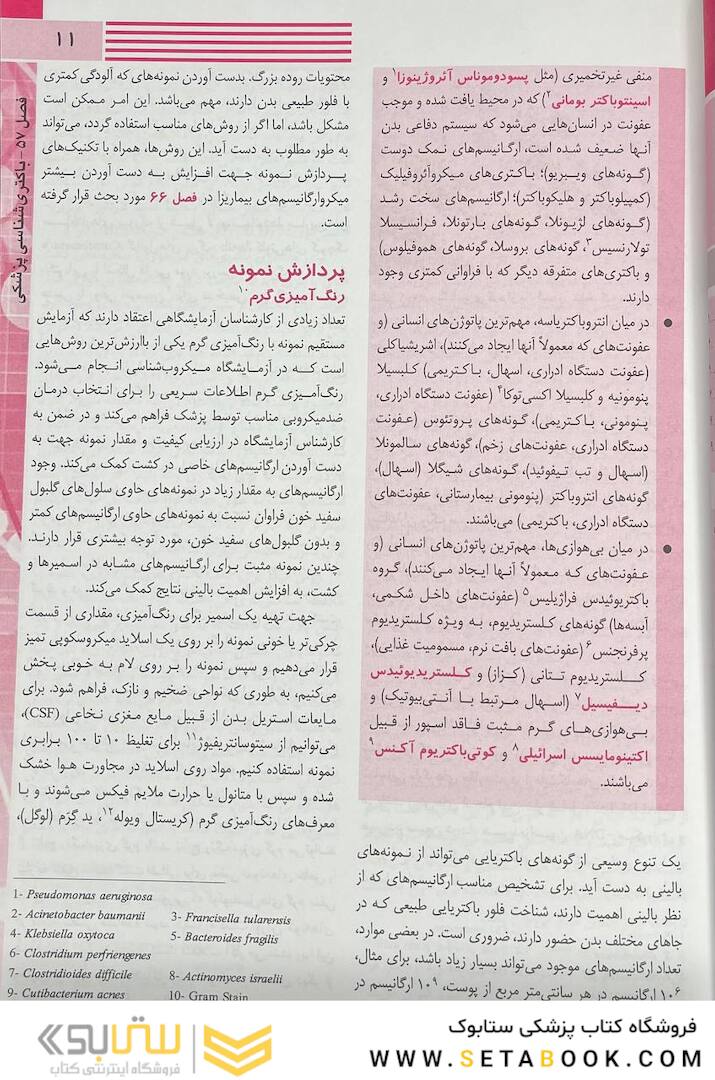 ۱۱
فصل ۵۷ - باکتری‌شناسی پزشکی
منفی غیرتخمیری (مثل پسودوموناس آئروژینوزا۱ و
اسینتوباکتر بومانی۲) که در محیط یافت شده و موجب
عفونت در انسان‌هایی می‌شود که سیستم دفاعی بدن
آنها ضعیف شده است، ارگانیسم‌های نمک دوست
(گونه‌های ویبریو)؛ باکتری‌های میکروآئروفیلیک
(کمپیلوباکتر و هلیکوباکتر)؛ ارگانیسم‌های سخت رشد
(گونه‌های لژیونلا، گونه‌های بارتونلا، فرانسیسلا
تولارنسیس۳، گونه‌های بروسلا، گونه‌های هموفیلوس)
و باکتری‌های متفرقه دیگر که با فراوانی کمتری وجود
دارند.
● در میان انتروباکتریاسه، مهم‌ترین پاتوژن‌های انسانی (و
عفونت‌های که معمولاً آنها ایجاد می‌کنند)، اشریشیاکلی
(عفونت دستگاه ادراری، اسهال، باکتریمی) کلبسیلا
پنومونیه و کلبسیلا اکسی‌توکا۴ (عفونت دستگاه ادراری،
پنومونی، باکتریمی)، گونه‌های پروتئوس (عفونت
دستگاه ادراری، عفونت‌های زخم)، گونه‌های سالمونلا
(اسهال و تب تیفوئید)، گونه‌های شیگلا (اسهال)،
گونه‌های انتروباکتر (پنومونی بیمارستانی، عفونت‌های
دستگاه ادراری، باکتریمی) می‌باشند.
● در میان بی‌هوازی‌ها، مهم‌ترین پاتوژن‌های انسانی (و
عفونت‌های که معمولاً آنها ایجاد می‌کنند)، گروه
باکتریوئیدس فراژیلیس۵ (عفونت‌های داخل شکمی،
آبسه‌ها) گونه‌های کلستریدیوم، به ویژه کلستریدیوم
پرفرنجنس۶ (عفونت‌های بافت نرم، مسمومیت غذایی)،
کلستریدیوم تتانی (کزاز) و کلستریدیوئیدس
دیفیسیل۷ (اسهال مرتبط با آنتی‌بیوتیک) و
بی‌هوازی‌های گرم مثبت فاقد اسپور از قبیل
اکتینومایسس اسرائیلی۸ و کوتی‌باکتریوم آکنس۹
می‌باشند.
یک تنوع وسیعی از گونه‌های باکتریایی می‌تواند از نمونه‌های
بالینی به دست آید. برای تشخیص مناسب ارگانیسم‌های که از
نظر بالینی اهمیت دارند، شناخت فلور باکتریایی طبیعی که در
جاهای مختلف بدن حضور دارند، ضروری است. در بعضی موارد،
تعداد ارگانیسم‌های موجود می‌تواند بسیار زیاد باشد، برای مثال،
۱۰۶ ارگانیسم در هر سانتی‌متر مربع از پوست، ۱۰۹ ارگانیسم در
محتویات روده بزرگ. بدست آوردن نمونه‌های که آلودگی کمتری
با فلور طبیعی بدن دارند، مهم می‌باشد. این امر ممکن است
مشکل باشد، اما اگر از روش‌های مناسب استفاده گردد، می‌تواند
به طور مطلوب به دست آید. این روش‌ها، همراه با تکنیک‌های
پردازش نمونه جهت افزایش به دست آوردن بیشتر
میکروارگانیسم‌های بیماریزا در فصل ۶۶ مورد بحث قرار گرفته
است.
پردازش نمونه
رنگ‌آمیزی گرم۱۰
تعداد زیادی از کارشناسان آزمایشگاهی اعتقاد دارند که آزمایش
مستقیم نمونه با رنگ‌آمیزی گرم یکی از باارزش‌ترین روش‌هایی
است که در آزمایشگاه میکروب‌شناسی انجام می‌شود.
رنگ‌آمیزی گرم اطلاعات سریعی را برای انتخاب درمان
ضدمیکروبی مناسب توسط پزشک فراهم می‌کند و در ضمن به
کارشناس آزمایشگاه در ارزیابی کیفیت و مقدار نمونه جهت به
دست آوردن ارگانیسم‌های خاصی در کشت کمک می‌کند. وجود
ارگانیسم‌های به مقدار زیاد در نمونه‌های حاوی سلول‌های گلبول
سفید خون فراوان نسبت به نمونه‌های حاوی ارگانیسم‌های کمتر
و بدون گلبول‌های سفید خون، مورد توجه بیشتری قرار دارند.
چندین نمونه مثبت برای ارگانیسم‌های مشابه در اسمیرها و
کشت، به افزایش اهمیت بالینی نتایج کمک می‌کند.
جهت تهیه یک اسمیر برای رنگ‌آمیزی، مقداری از قسمت
چرکی‌تر یا خونی نمونه را بر روی یک اسلاید میکروسکوپی تمیز
قرار می‌دهیم و سپس نمونه را بر روی لام به خوبی پخش
می‌کنیم، به طوری که نواحی ضخیم و نازک، فراهم شود. برای
مایعات استریل بدن از قبیل مایع مغزی نخاعی (CSF)،
می‌توانیم از سیتوسانتریفیوژ۱۱ برای تغلیظ ۱۰ تا ۱۰۰ برابری
نمونه استفاده کنیم. مواد روی اسلاید در مجاورت هوا خشک
شده و سپس با متانول یا حرارت ملایم فیکس می‌شوند و با
معرف‌های رنگ‌آمیزی گرم (کریستال ویوله۱۲، ید گرم (لوگل)،
1- Pseudomonas aeruginosa
2- Acinetobacter baumanii 3- Francisella tularensis
4- Klebsiella oxytoca 5- Bacteroides fragilis
6- Clostridium perfriengenes
7- Clostridioides difficile 8- Actinomyces israelii
9- Cutibacterium acnes 10- Gram Stain
فروشگاه کتاب پزشکی ستابوک
WWW.SETABOOK.COM
ستابوک
فروشگاه اینترنتی کتاب